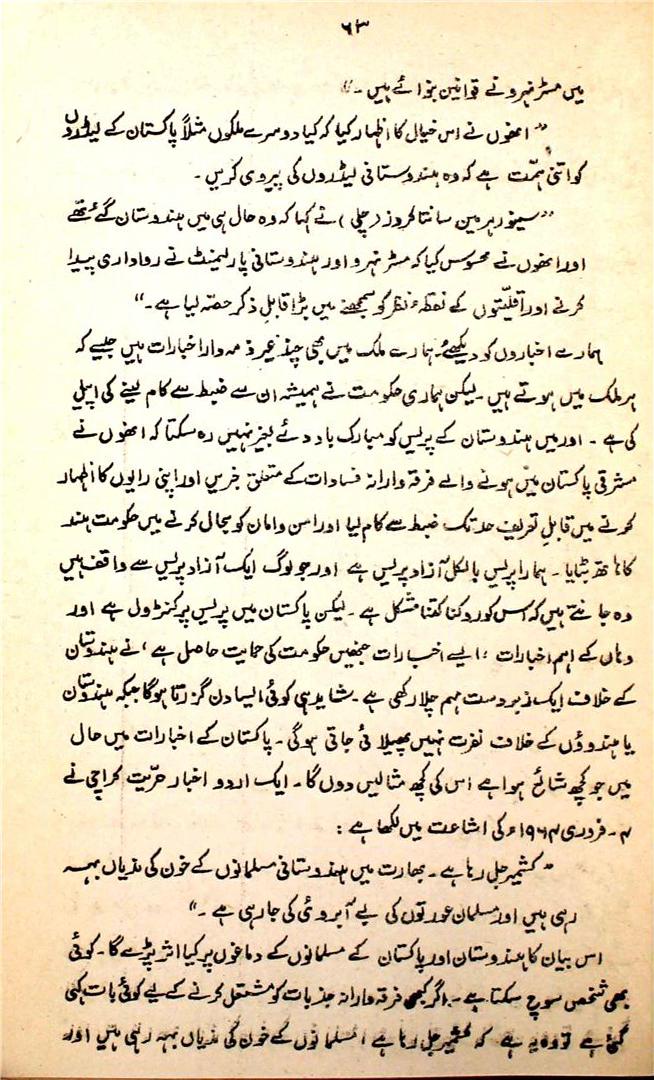 ۶۳
میں مسٹر نہرو نے قوانین بنوائے ہیں۔“
”انھوں نے اس خیال کا اظہار کیا کہ کیا دوسرے ملکوں مثلاً پاکستان کے لیڈروں
کو اتنی ہمّت ہے کہ وہ ہندوستانی لیڈروں کی پیروی کریں۔
”سینور ہرمین سانتا کروز (چلی) نے کہا کہ وہ حال ہی میں ہندوستان گئے تھے
اور انھوں نے محسوس کیا کہ مسٹر نہرو اور ہندوستانی پارلیمنٹ نے رواداری پیدا
کرنے اور اقلیّتوں کے نقطۂ نظر کو سمجھنے میں بڑا قابلِ ذکر حصّہ لیا ہے۔“
ہمارے اخباروں کو دیکھئے۔ ہمارے ملک میں بھی چند غیر ذمہ دار اخبارات ہیں جیسے کہ
ہر ملک میں ہوتے ہیں۔ لیکن ہماری حکومت نے ہمیشہ ان سے ضبط سے کام لینے کی اپیل
کی ہے۔ اور میں ہندوستان کے پریس کو مبارک باد دئے بغیر نہیں رہ سکتا کہ انھوں نے
مشرقی پاکستان میں ہونے والے فرقہ وارانہ فسادات کے متعلق خبریں اور اپنی رایوں کا اظہار
کرنے میں قابلِ تعریف حد تک ضبط سے کام لیا اور امن و امان کو بحال کرنے میں حکومت ہند
کا ہاتھ بٹایا۔ ہمارا پریس بالکل آزاد پریس ہے اور جو لوگ ایک آزاد پریس سے واقف ہیں
وہ جانتے ہیں کہ اس کو روکنا کتنا مشکل ہے۔ لیکن پاکستان میں پریس پر کنٹرول ہے اور
وہاں کے اہم اخبارات، ایسے اخبارات جنھیں حکومت کی حمایت حاصل ہے، نے ہندوستان
کے خلاف ایک زبردست مہم چلا رکھی ہے۔ شاید ہی کوئی ایسا دن گزرتا ہوگا جبکہ ہندوستان
یا ہندوؤں کے خلاف نفرت نہیں پھیلائی جاتی ہوگی۔ پاکستان کے اخبارات میں حال
میں جو کچھ شائع ہوا ہے اس کی کچھ مثالیں دوں گا۔ ایک اردو اخبار حرّیت کراچی نے
۴۔ فروری ۱۹۶۴ء کی اشاعت میں لکھا ہے:
”کشمیر جل رہا ہے۔ بھارت میں ہندوستانی مسلمانوں کے خون کی ندیاں بہہ
رہی ہیں اور مسلمان عورتوں کی بے آبروئی کی جا رہی ہے۔“
اس بیان کا ہندوستان اور پاکستان کے مسلمانوں کے دماغوں پر کیا اثر پڑے گا۔ کوئی
بھی شخص سوچ سکتا ہے۔ اگر کبھی فرقہ وارانہ جذبات کو مشتعل کرنے کے لیے کوئی بات کہی
گئی ہے تو وہ یہ ہے کہ کشمیر جل رہا ہے، مسلمانوں کے خون کی ندیاں بہہ رہی ہیں اور